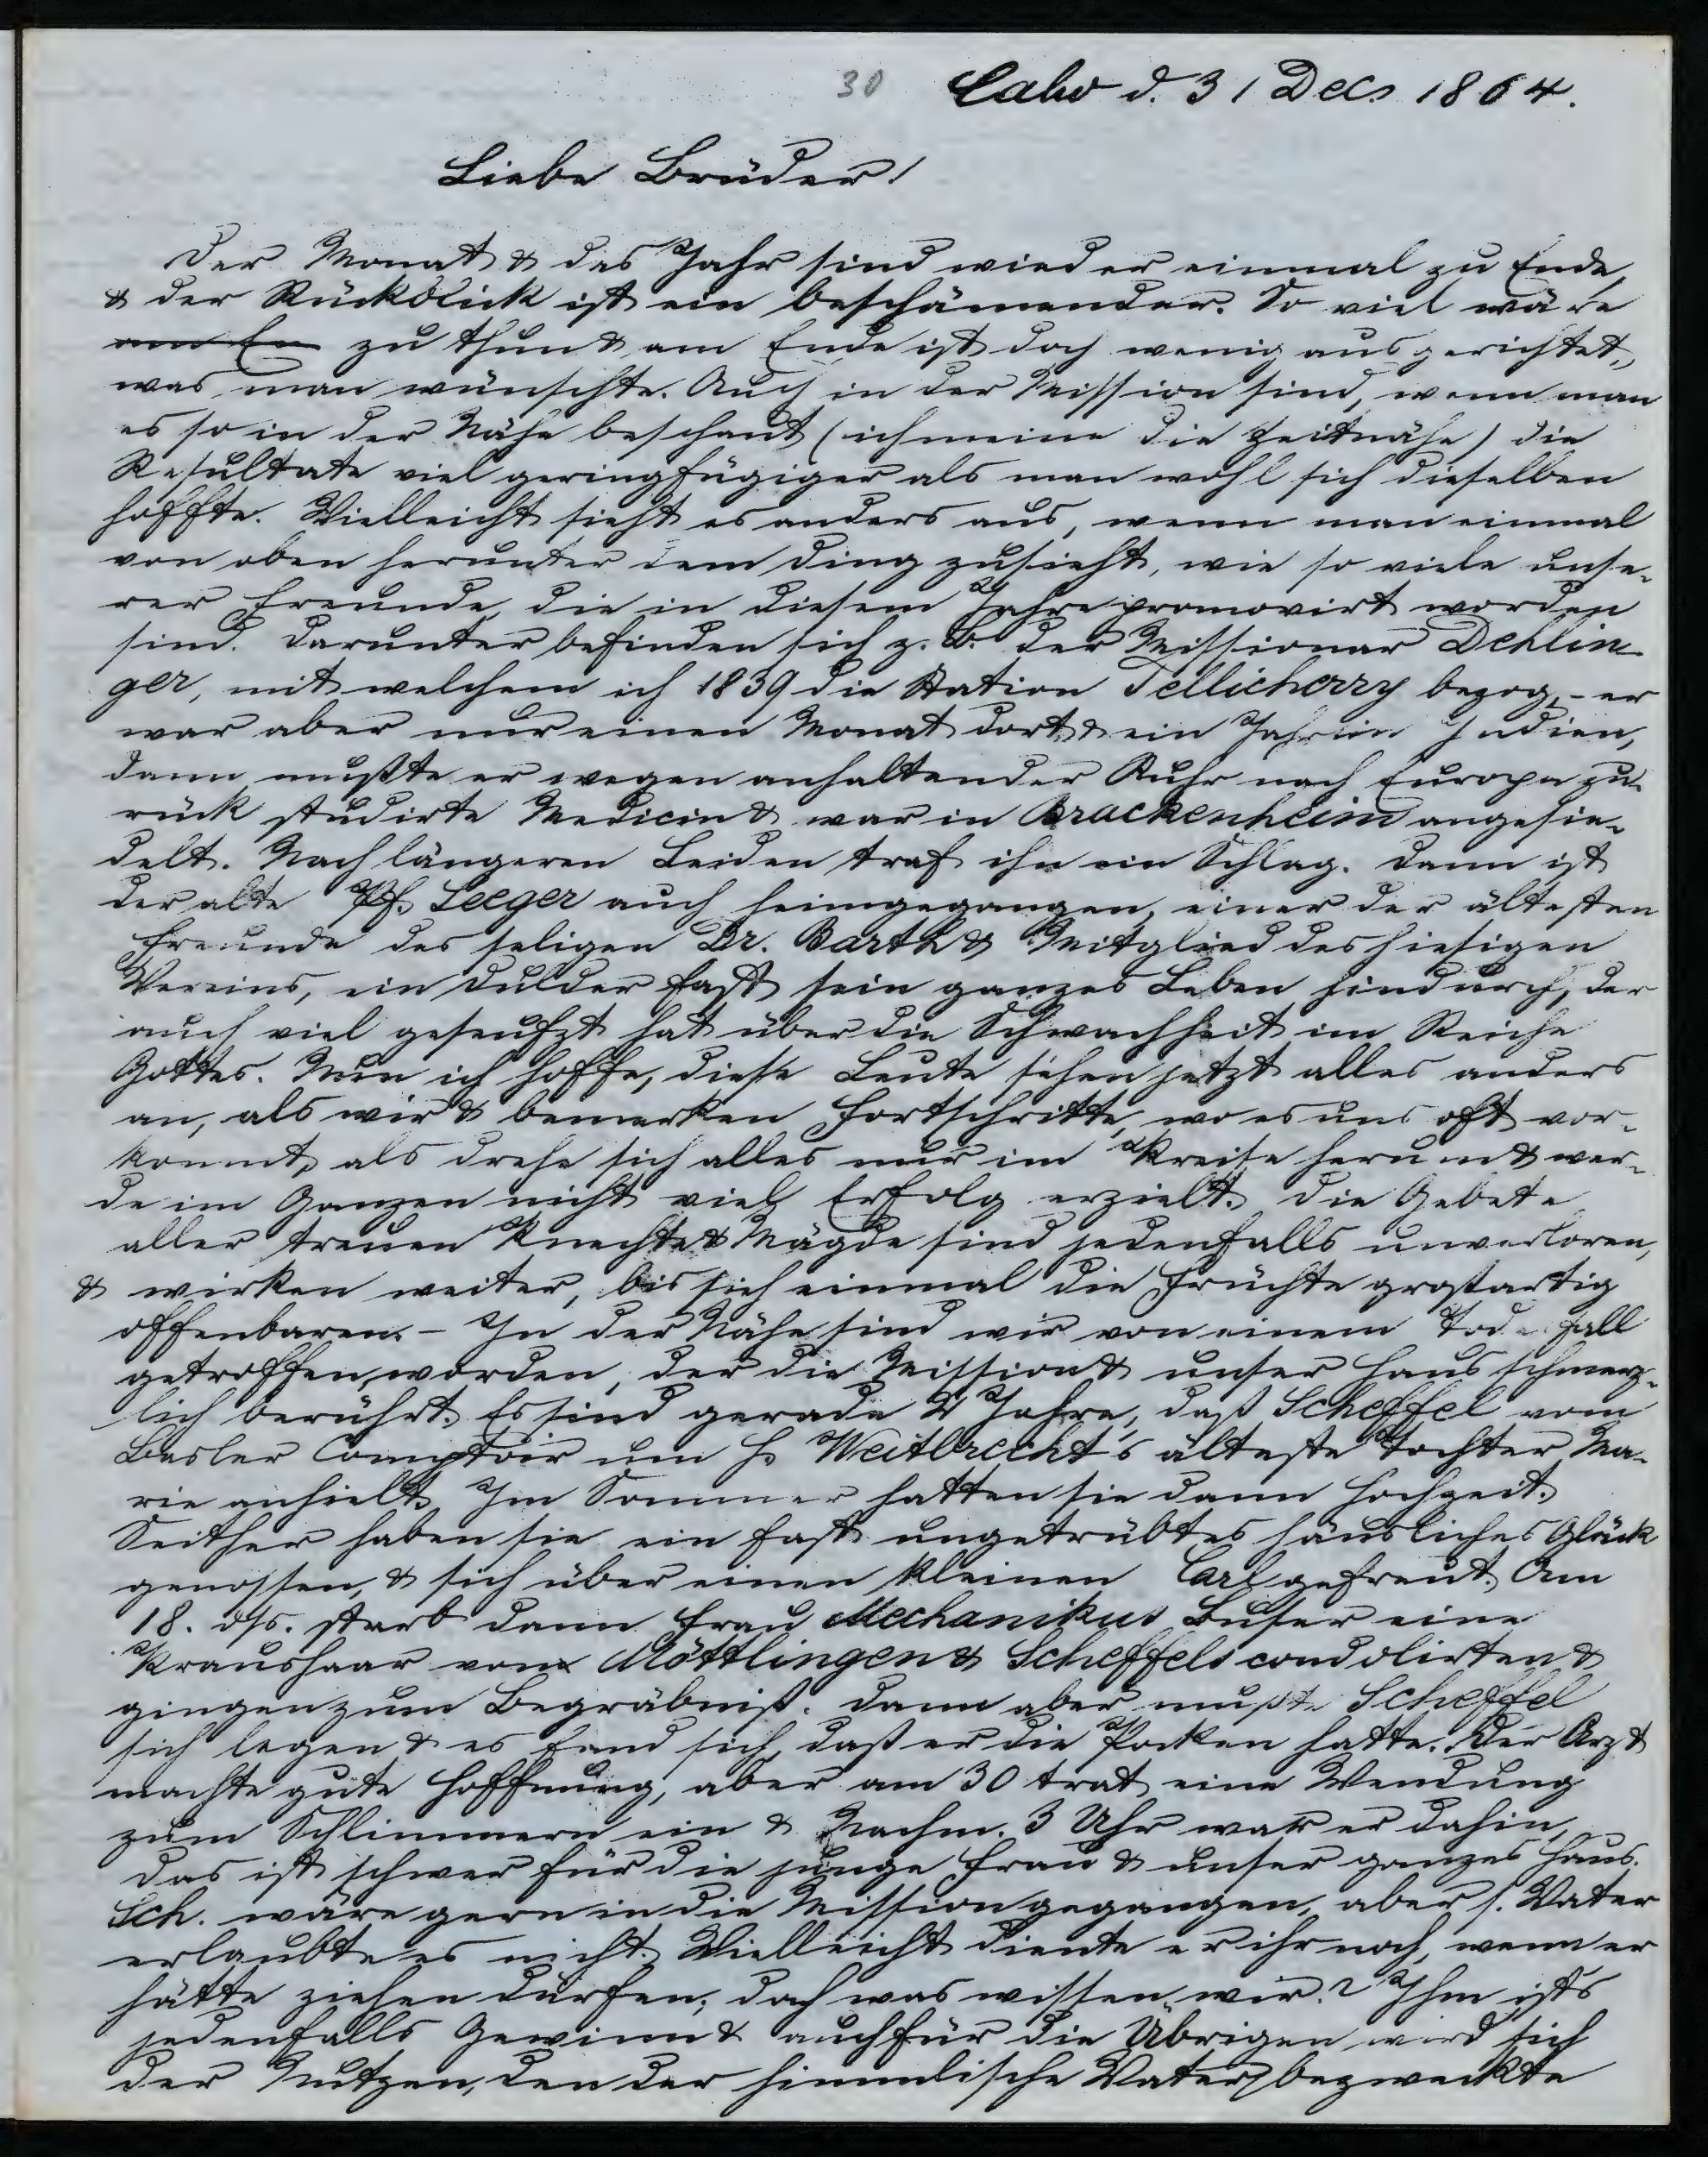 30 Calw d. 31 Dec. 1864.
Liebe Brüder!
Der Monat & das Jahr sind wieder einmal zu Ende,
& der Rückblick ist ein beschämender. So viel wäre
am En zu thun & am Ende ist doch wenig ausgerichtet,
was man wünschte. Auch in der Mission sind, wenn man
es so in der Nähe beschaut (ich meine die Zeitnähe) die
Resultate viel geringfügiger als man wohl sich dieselben
hoffte. Vielleicht sieht es anders aus, wenn man einmal
von oben herunter dem Ding zusieht, wie so viele unse-
rer Freunde, die in diesem Jahre promovirt worden
sind. Darunter befinden sich z. B. der Missionar Dehlin-
ger, mit welchem ich 1839 die Station Tellicherry bezog, - er
war aber nur einen Monat dort & ein Jahr in Indien,
dann mußte er wegen anhaltender Ruhr nach Europa zu-
rück studirte Medicin & war in Brackenheim angesie-
delt. Nach längeren Leiden traf ihn ein Schlag. Dann ist
der alte Pf. Seeger auch heimgegangen, einer der ältesten
Freunde des seligen Dr. Barth & Mitglied des hiesigen
Vereins, ein Dulder fast sein ganzes Leben hindurch, der
auch viel geseufzt hat über die Schwachheit im Reiche
Gottes. Nun ich hoffe, diese Leute sehen jetzt alles anders
an, als wir & bemerken Fortschritte, wo es uns oft vor-
kommt, als drehe sich alles nur im Kreise herum & wer-
de im Ganzen nicht viel Erfolg erzielt. Die Gebete
aller treuen Knechte & Mägde sind jedenfalls unverloren,
& wirken weiter, bis sich einmal die Früchte großartig
offenbaren. - In der Nähe sind wir von einem Todesfall
getroffen worden, der die Mission & unser Haus schmerz-
lich berührt. Es sind gerade 2 Jahre, daß Scheffel vom
Basler Comptoir um H. Weitbrecht's älteste Tochter Ma-
rie anhielt. Im Sommer hatten sie dann Hochzeit.
Seither haben sie ein fast ungetrübtes häusliches Glück
genossen, & sich über einen kleinen Carl gefreut. Am
18. ds. starb dann Frau Mechanikus Buser eine
Kraushaar von Möttlingen & Scheffels condolirten &
gingen zum Begräbniß. Dann aber mußte Scheffel
sich legen & es fand sich, daß er die Pocken hatte. Der Arzt
machte gute Hoffnung, aber am 30 trat eine Wendung
zum Schlimmern ein & Nachm. 3 Uhr war er dahin,
das ist schwer für die junge Frau & unser ganzes Haus.
Sch. wäre gern in die Mission gegangen, aber s. Vater
erlaubte es nicht. Vielleicht diente er ihr noch, wenn er
hätte ziehen dürfen; doch was wissen wir? Ihm ists
jedenfalls Gewinn & auch für die Übrigen wird sich
der Nutzen, den der himmlische Vater bezweckte